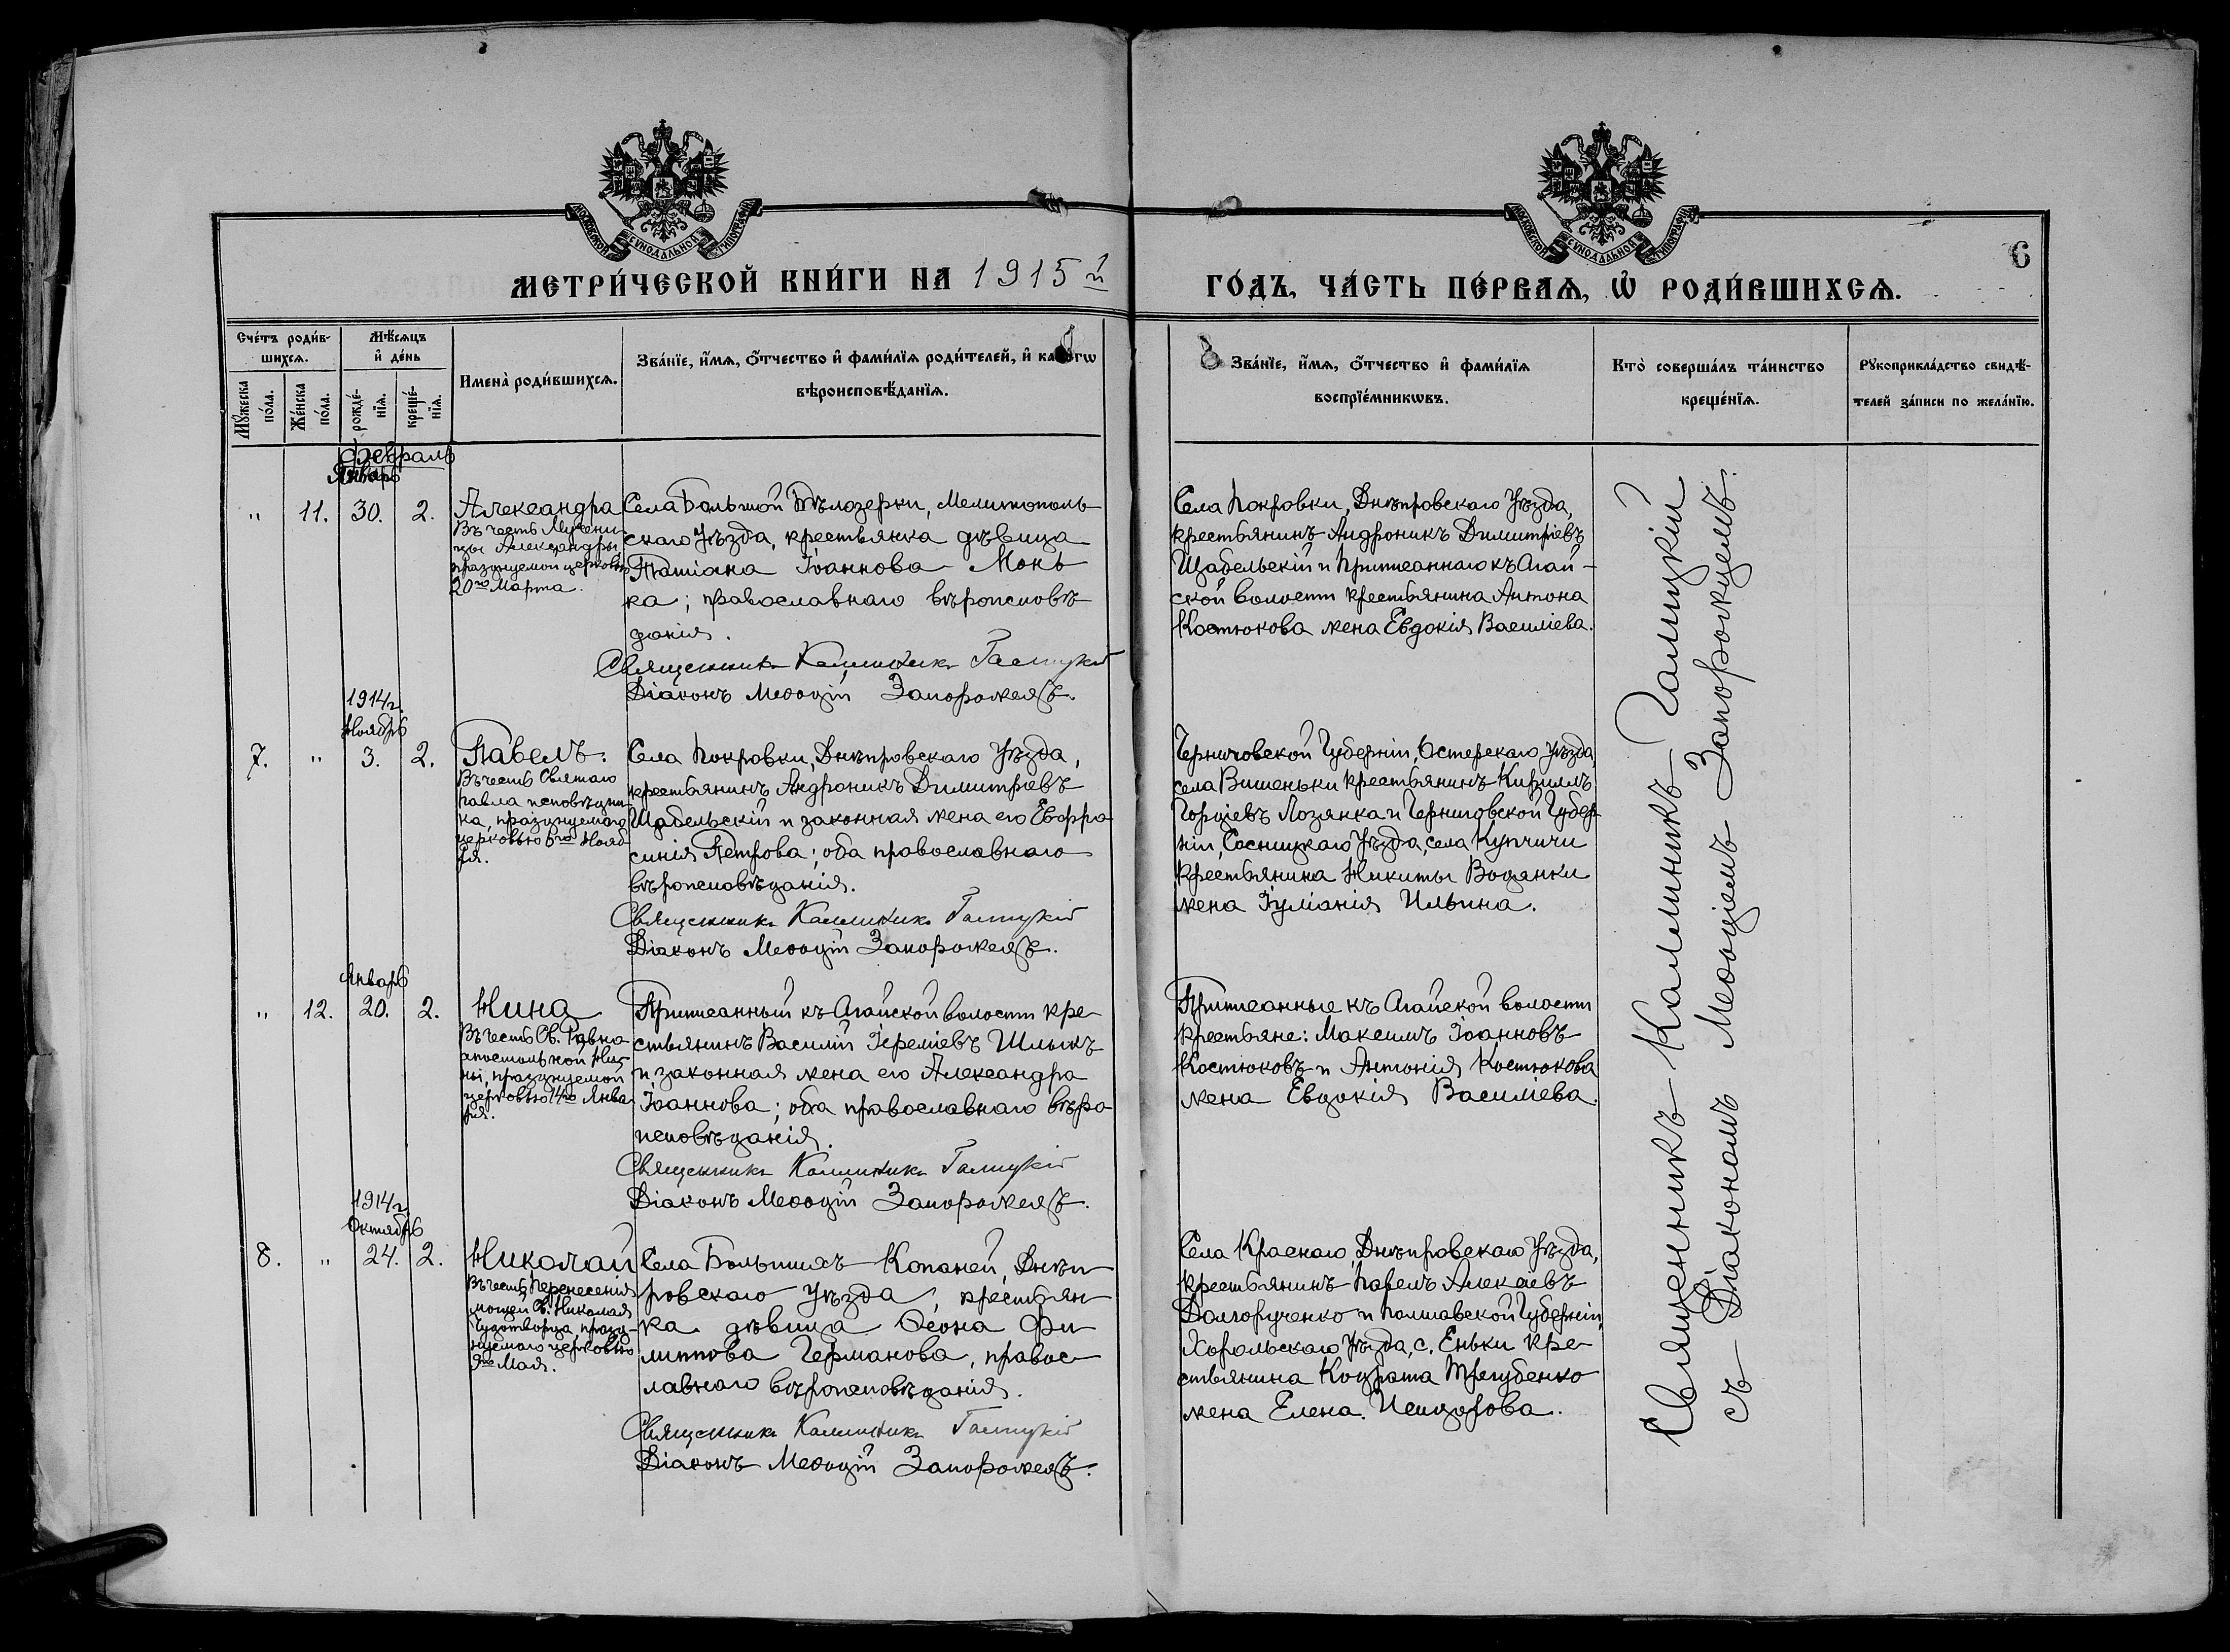 МОСКОВСКОЙ СУНОДАЛЬНОЙ ТИПОГРАФІИ
МОСКОВСКОЙ СУНОДАЛЬНОЙ ТИПОГРАФІИ
6
МЕТРИ́ЧЕСКОЙ КНИ́ГИ НА 1915й
ГО́ДЪ, ЧА́СТЬ ПЕ́РВАѦ, Ѽ РОДИ́ВШИХСѦ.
Сче́тъ роди́в-
шихсѧ.
Мѣ́сѧцъ
и҆ де́нь
Му́жеска
по́ла.
Же́нска
по́ла.
рожде́-
нїѧ.
креще́-
нїѧ.
Имена̀ роди́вшихсѧ.
Зва́нїе, и҆́мѧ, ѻ҆́тчество и҆ фами́лїѧ роди́телей, и҆ како́гѡ
вѣроисповѣ́данїѧ.
Зва́нїе, и҆́мѧ, ѻ҆́тчество и҆ фами́лїѧ
воспрїе́мникѡвъ.
Кто̀ соверша́лъ та́инство
креще́нїѧ.
Рꙋкоприкла́дство свидѣ́-
телей за́писи по жела́нїю.
Февраль
Январь
" 11. 30. 2.
Александра
Въ честь Мучени-
цы Александры,
празднуемой церковью
20го Марта.
Села Большой Бѣлозерки, Мелитополь-
скаго Уѣзда, крестьянка дѣвица
Татіана Іоаннова Монь
ка; православнаго вѣроисповѣ-
данія.
Священникъ Каллиникъ Галицкій
Діаконъ Меѳодій Запорожецъ.
Села Покровки, Днѣпровскаго Уѣзда,
крестьянинъ Андроникъ Димитріевъ
Щабельскій и Приписаннаго къ Агай-
ской волости крестьянина Антона
Костюкова жена Евдокія Василіева.
1914 г.
Ноябрь
7. " 3. 2.
Павелъ.
Въ честь Святаго
Павла исповѣдни-
ка, празднуемаго
церковью 6го Нояб-
ря.
Села Покровки, Днѣпровскаго Уѣзда,
крестьянинъ Андроникъ Димитріевъ
Щабельскій и законная жена его Евфро-
синія Петрова; оба православнаго
вѣроисповѣданія.
Священникъ Каллиникъ Галицкій
Діаконъ Меѳодій Запорожецъ.
Черниговской Губерніи, Остерскаго Уѣзда,
села Вишеньки крестьянинъ Кириллъ
Гордіевъ Лозянка и Черниговской Губер-
ніи, Сосницкаго Уѣзда, села Купчичи
крестьянина Никиты Водянки
жена Іуліанія Ильина.
Январь
" 12. 20. 2.
Нина
Въ честь Св. Равно-
апостольной Ни-
ны, празднуемой
церковью 14го Янва-
ря.
Приписанный къ Агайской волости кре-
стьянинъ Василій Іереміевъ Шлыкъ
и законная жена его Александра
Іоаннова; оба православнаго вѣро-
исповѣданія.
Священникъ Каллиникъ Галицкій
Діаконъ Меѳодій Запорожецъ.
Приписанные къ Агайской волости
крестьяне: Максимъ Іоанновъ
Костюковъ и Антонія Костюкова
жена Евдокія Василіева.
1914 г.
Октябрь
8. " 24. 2.
Николай
Въ честь Перенесенія
мощей Св. Николая
Чудотворца, празд-
нуемаго церковью
9го Мая.
Села Большихъ Копаней, Днѣп-
ровскаго Уѣзда, крестьян-
ка дѣвица Ѳеона Фи-
липпова Германова, правос-
лавнаго вѣроисповѣданія.
Священникъ Каллиникъ Галицкій
Діаконъ Меѳодій Запорожецъ.
Села Краснаго, Днѣпровскаго Уѣзда,
крестьянинъ Павелъ Алексіевъ
Долгорученко и Полтавской Губерніи,
Хорольскаго Уѣзда, с. Еньки кре-
стьянина Кодрата Трегубенко
жена Елена Исидорова.
Священникъ Каллиникъ Галицкій
съ Діакономъ Меѳодіемъ Запорожцемъ.